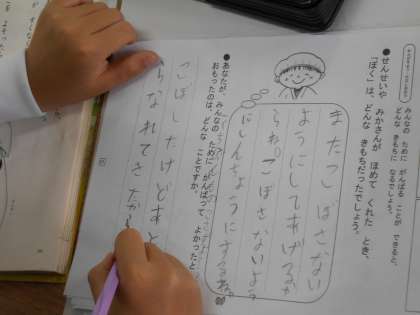 みんなの ために がんばる ことが できると、
どんな きもちに なるでしょう。
●せんせいや みかさんが ほめて くれた とき、
「ぼく」は、どんな きもちだったでしょう。
またこぼさない
ようにしてあげるか
らね。こぼさないよう
にしんちょうにするね。
●あなたが、みんなの ために がんばって、よかったと
おもったのは、どんな ことですか。
こぼしたけどすと
らなれてきたか